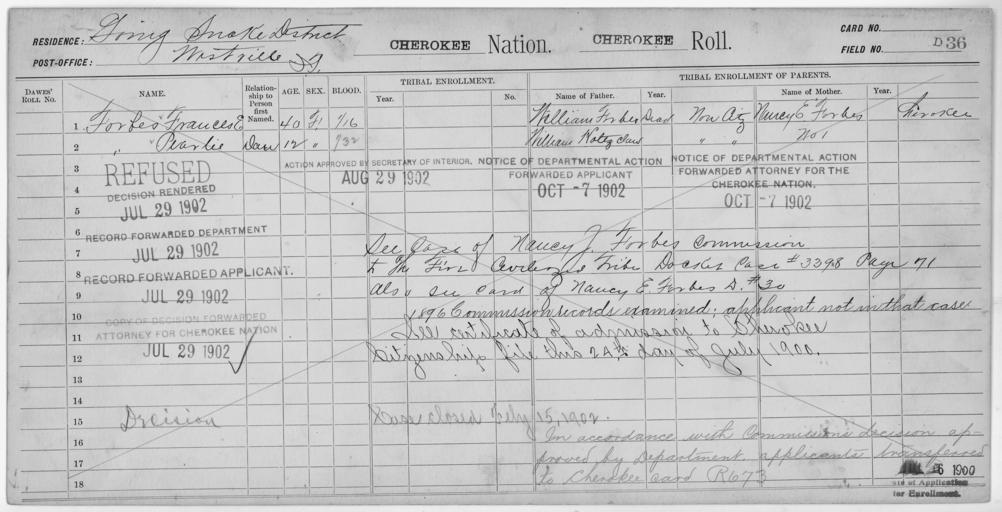 RESIDENCE: Going Snake District
POST-OFFICE: Westville I.T.
CHEROKEE Nation. CHEROKEE Roll.
CARD NO.
FIELD NO. D 36
DAWES' ROLL NO. NAME. Relationship to Person first Named. AGE. SEX. BLOOD. TRIBAL ENROLLMENT. Year. No. TRIBAL ENROLLMENT OF PARENTS. Name of Father. Year. Name of Mother. Year.
1 Forbes Frances E 40 F 1/16 William Forbes Dead Non Citz Nancy E Forbes Cherokee
2 " Pearlie Dau 12 " 1/32 William " " No 1
3 REFUSED ACTION APPROVED BY SECRETARY OF INTERIOR. NOTICE OF DEPARTMENTAL ACTION FORWARDED APPLICANT NOTICE OF DEPARTMENTAL ACTION FORWARDED ATTORNEY FOR THE CHEROKEE NATION.
4 DECISION RENDERED AUG 29 1902 OCT -7 1902 OCT -7 1902
5 JUL 29 1902
6 RECORD FORWARDED DEPARTMENT
7 JUL 29 1902 See Case of Nancy J. Forbes Commission
8 RECORD FORWARDED APPLICANT. to the Five Civilized Tribe Docket Case # 3398 Page 71
9 JUL 29 1902 also see card of Nancy E. Forbes D. # 30
10 COPY OF DECISION FORWARDED 1896 Commission records examined; applicant not in that case
11 ATTORNEY FOR CHEROKEE NATION See certificate of admission to Cherokee
12 JUL 29 1902 Citizenship, file this 24th day of July 1900.
13
14
15 Decision Case closed Feby 15, 1902.
16 In accordance with Commission's decision ap-
17 proved by Department, applicants transferred
18 to Cherokee card R673
6 1900
of Application
for Enrollment.